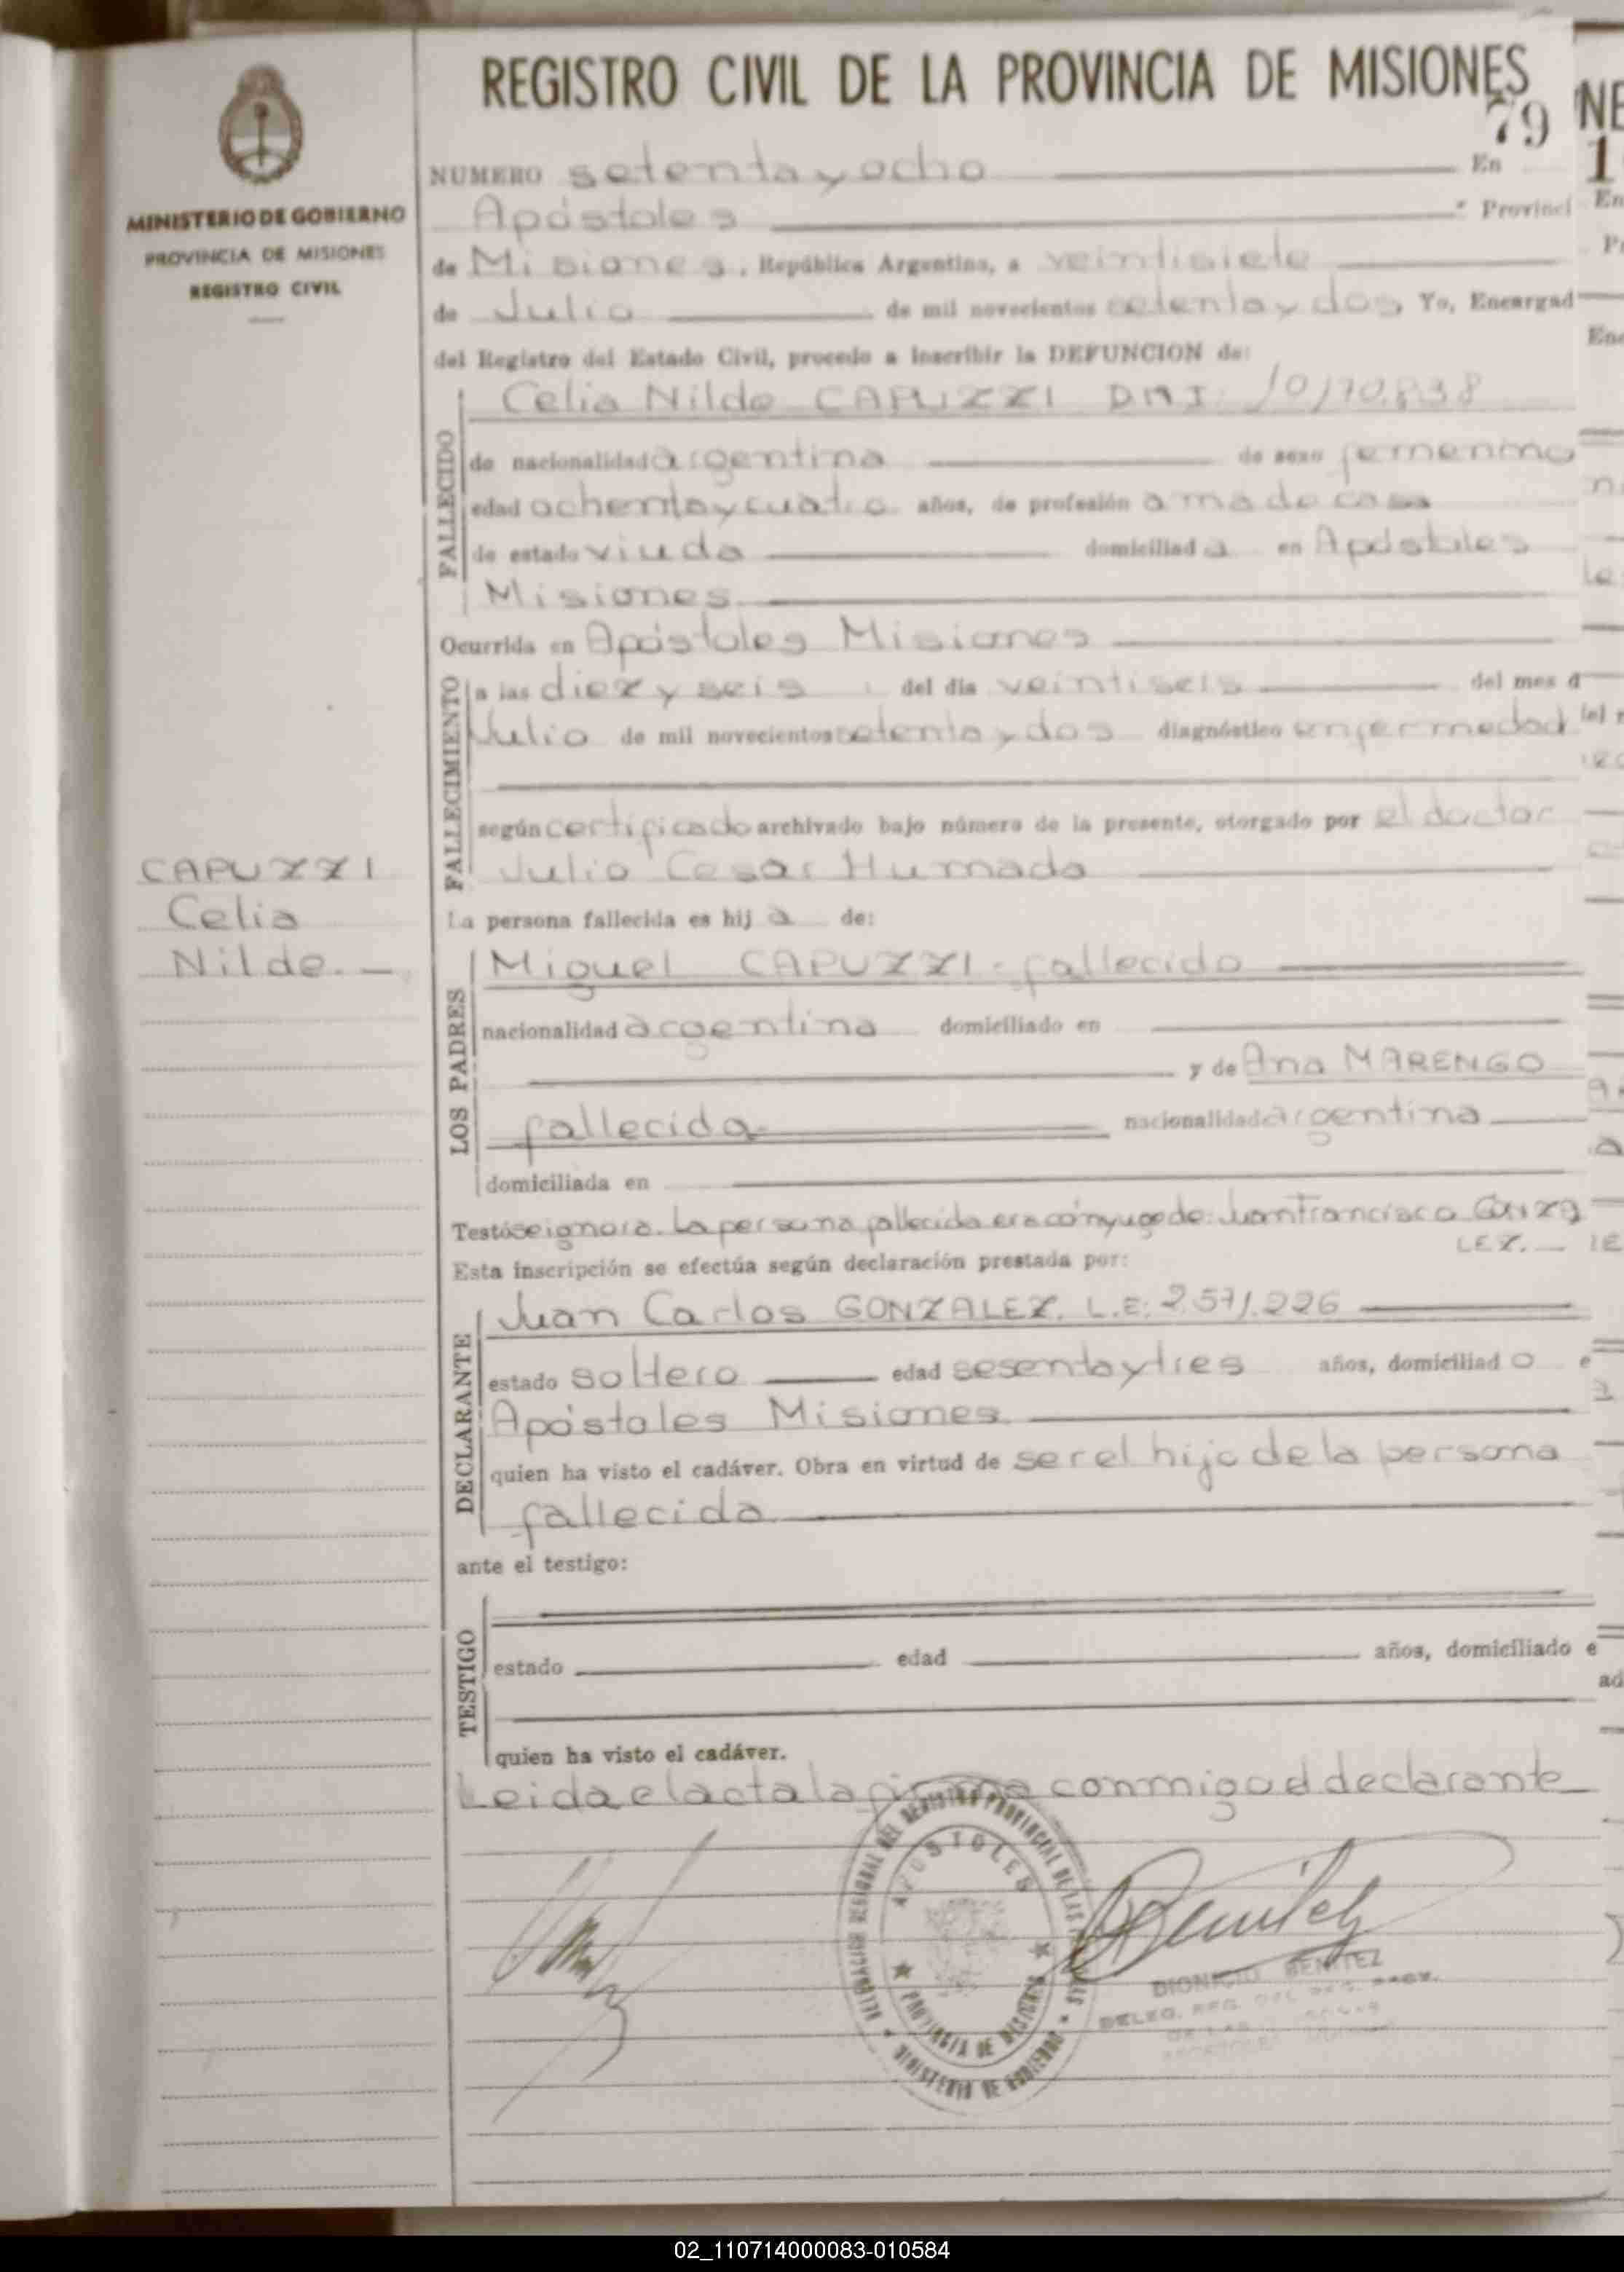 REGISTRO CIVIL DE LA PROVINCIA DE MISIONES
79
MINISTERIO DE GOBIERNO
PROVINCIA DE MISIONES
REGISTRO CIVIL
NUMERO setenta y ocho En
Apóstoles Provinci
de Misiones, República Argentina, a veintisiete
de Julio de mil novecientos setenta y dos Yo, Encargad
del Registro del Estado Civil, procedo a inscribir la DEFUNCION de:
FALLECIDO
Celia Nilde CAPUZZI DNI
de nacionalidad argentina de sexo femenino
edad ochenta y cuatro años, de profesión ama de casa
de estado viuda domiciliad a en Apóstoles
Misiones
Ocurrida en Apóstoles Misiones
FALLECIMIENTO
a las diez y seis del día veintiseis del mes d
Julio de mil novecientos setenta y dos diagnóstico enfermedad
según certificado archivado bajo número de la presente, otorgado por el doctor
Julio Cesar Humada
CAPUZZI
Celia
Nilde. —
La persona fallecida es hij a de:
LOS PADRES
Miguel CAPUZZI - fallecido
nacionalidad argentina domiciliado en
y de Ana MARENGO
fallecida nacionalidad argentina
domiciliada en
Testó se ignora. La persona fallecida era cónyuge de: Juan Francisco
LEZ. —
Esta inscripción se efectúa según declaración prestada por:
DECLARANTE
Juan Carlos GONZALEZ. L.E: 2.571.226
estado soltero edad sesenta y tres años, domiciliad o e
Apóstoles Misiones
quien ha visto el cadáver. Obra en virtud de ser el hijo de la persona
fallecida
ante el testigo:
TESTIGO
estado edad años, domiciliado e
quien ha visto el cadáver.
Leida el acta la firma conmigo el declarante
DELEGACION REGIONAL DEL REGISTRO PROVINCIAL DE LAS
APOSTOLES
PROVINCIA DE MISIONES
MINISTERIO DE GOBIERNO
DIONICIO BENITEZ
DELEG. REG. DEL REG. PROV.
02_110714000083-010584